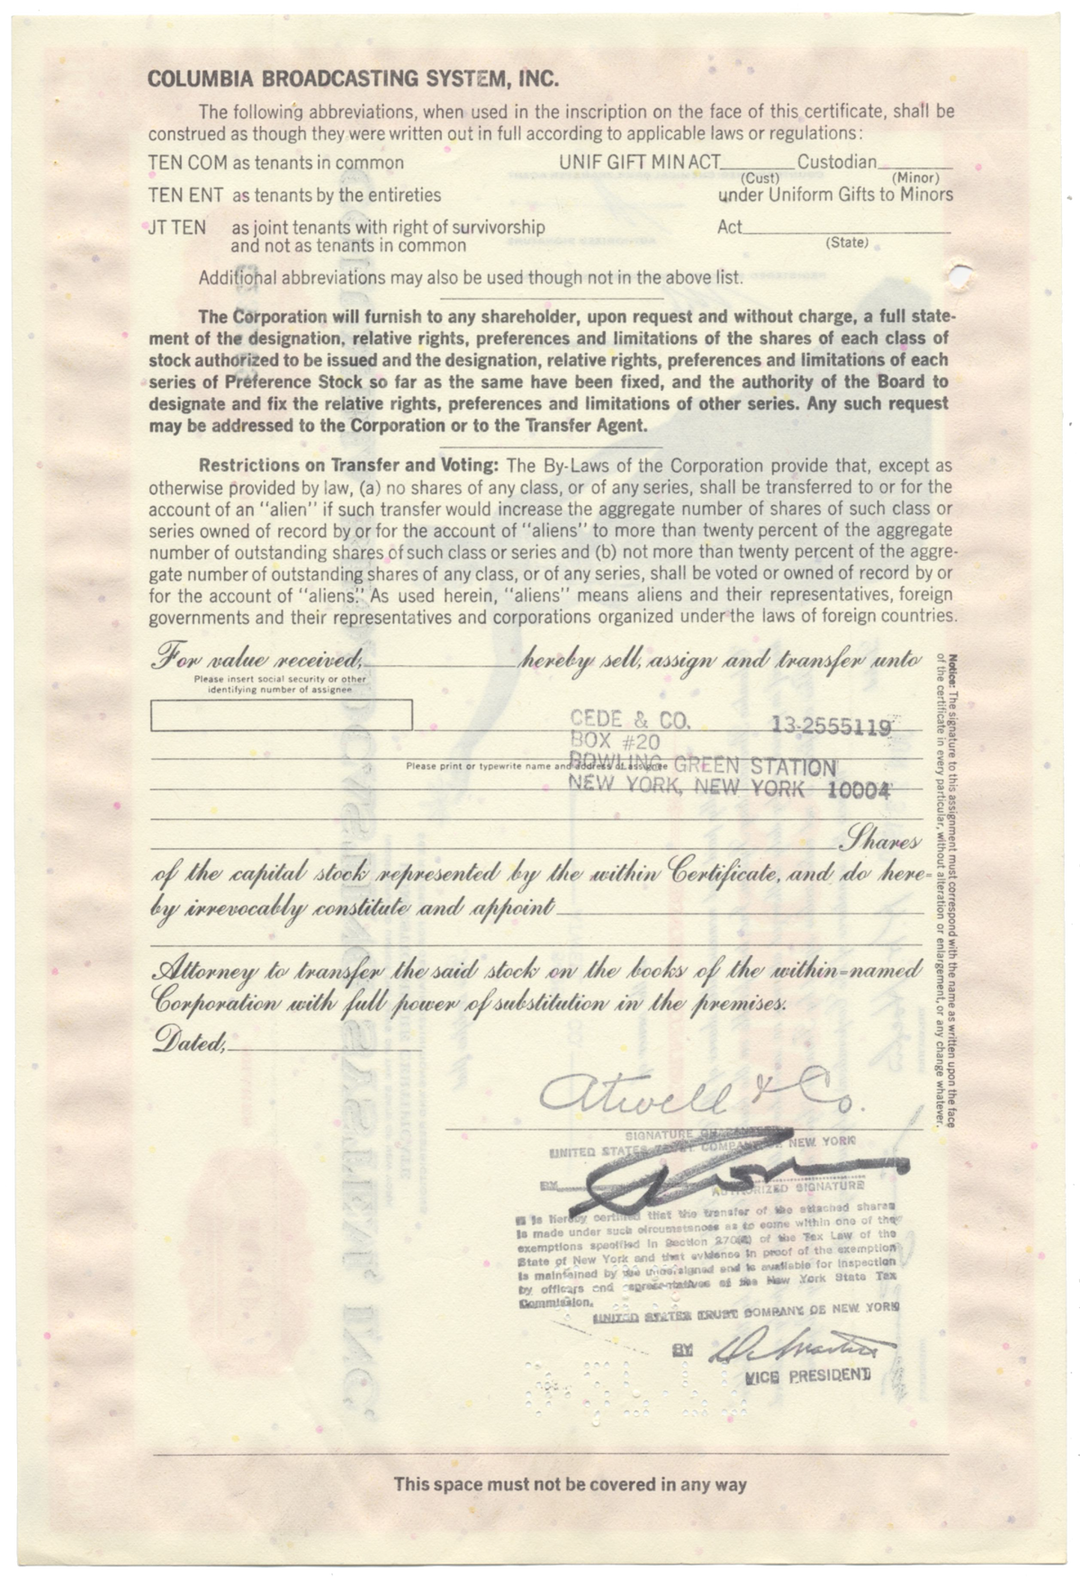 COLUMBIA BROADCASTING SYSTEM, INC.
The following abbreviations, when used in the inscription on the face of this certificate, shall be
construed as though they were written out in full according to applicable laws or regulations:
TEN COM as tenants in common UNIF GIFT MIN ACT______Custodian______
(Cust) (Minor)
TEN ENT as tenants by the entireties under Uniform Gifts to Minors
JT TEN as joint tenants with right of survivorship Act______
and not as tenants in common (State)
Additional abbreviations may also be used though not in the above list.
The Corporation will furnish to any shareholder, upon request and without charge, a full state-
ment of the designation, relative rights, preferences and limitations of the shares of each class of
stock authorized to be issued and the designation, relative rights, preferences and limitations of each
series of Preference Stock so far as the same have been fixed, and the authority of the Board to
designate and fix the relative rights, preferences and limitations of other series. Any such request
may be addressed to the Corporation or to the Transfer Agent.
Restrictions on Transfer and Voting: The By-Laws of the Corporation provide that, except as
otherwise provided by law, (a) no shares of any class, or of any series, shall be transferred to or for the
account of an "alien" if such transfer would increase the aggregate number of shares of such class or
series owned of record by or for the account of "aliens" to more than twenty percent of the aggregate
number of outstanding shares of such class or series and (b) not more than twenty percent of the aggre-
gate number of outstanding shares of any class, or of any series, shall be voted or owned of record by or
for the account of "aliens." As used herein, "aliens" means aliens and their representatives, foreign
governments and their representatives and corporations organized under the laws of foreign countries.
For value received,______hereby sell, assign and transfer unto
Please insert social security or other
identifying number of assignee
CEDE & CO. 13-2555119
BOX #20
Please print or typewrite name and address of assignee
BOWLING GREEN STATION
NEW YORK, NEW YORK 10004
______Shares
of the capital stock represented by the within Certificate, and do here=
by irrevocably constitute and appoint______
Attorney to transfer the said stock on the books of the within=named
Corporation with full power of substitution in the premises.
Dated,______
Notice: The signature to this assignment must correspond with the name as written upon the face
of the certificate in every particular, without alteration or enlargement, or any change whatever.
Atwell & Co.
SIGNATURE GUARANTEED
UNITED STATES TRUST COMPANY OF NEW YORK
BY
AUTHORIZED SIGNATURE
It is hereby certified that the transfer of the attached shares
is made under such circumstances as to come within one of the
exemptions specified in Section 270 of the Tax Law of the
State of New York and that evidence in proof of the exemption
is maintained by the undersigned and is available for inspection
by officers and representatives of the New York State Tax
Commission.
UNITED STATES TRUST COMPANY OF NEW YORK
BY
VICE PRESIDENT
This space must not be covered in any way